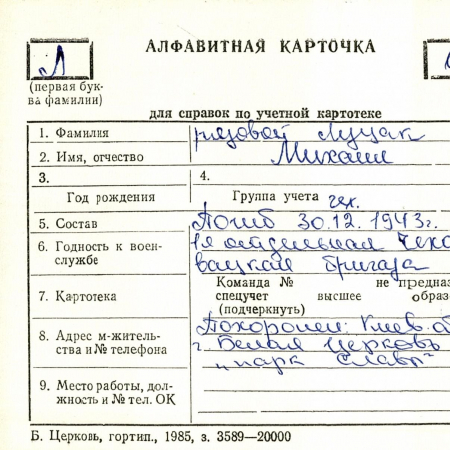 АЛФАВИТНАЯ КАРТОЧКА
Л
(первая бук-
ва фамилии)
для справок по учетной картотеке
1. Фамилия рядовой Луцак
2. Имя, отчество Михаил
3. 4.
Год рождения Группа учета чех.
5. Состав Погиб 30.12.1943г.
6. Годность к воен- 1я отдельная Чехо
службе вацкая бригада
Команда № не предназ
7. Картотека спецучет высшее образо
(подчеркнуть)
8. Адрес м-житель- Похоронен: Киев. об
ства и № телефона г. Белая Церковь
„парк Славы"
9. Место работы, дол-
жность и № тел. ОК
Б. Церковь, гортип., 1985, з. 3589—20000